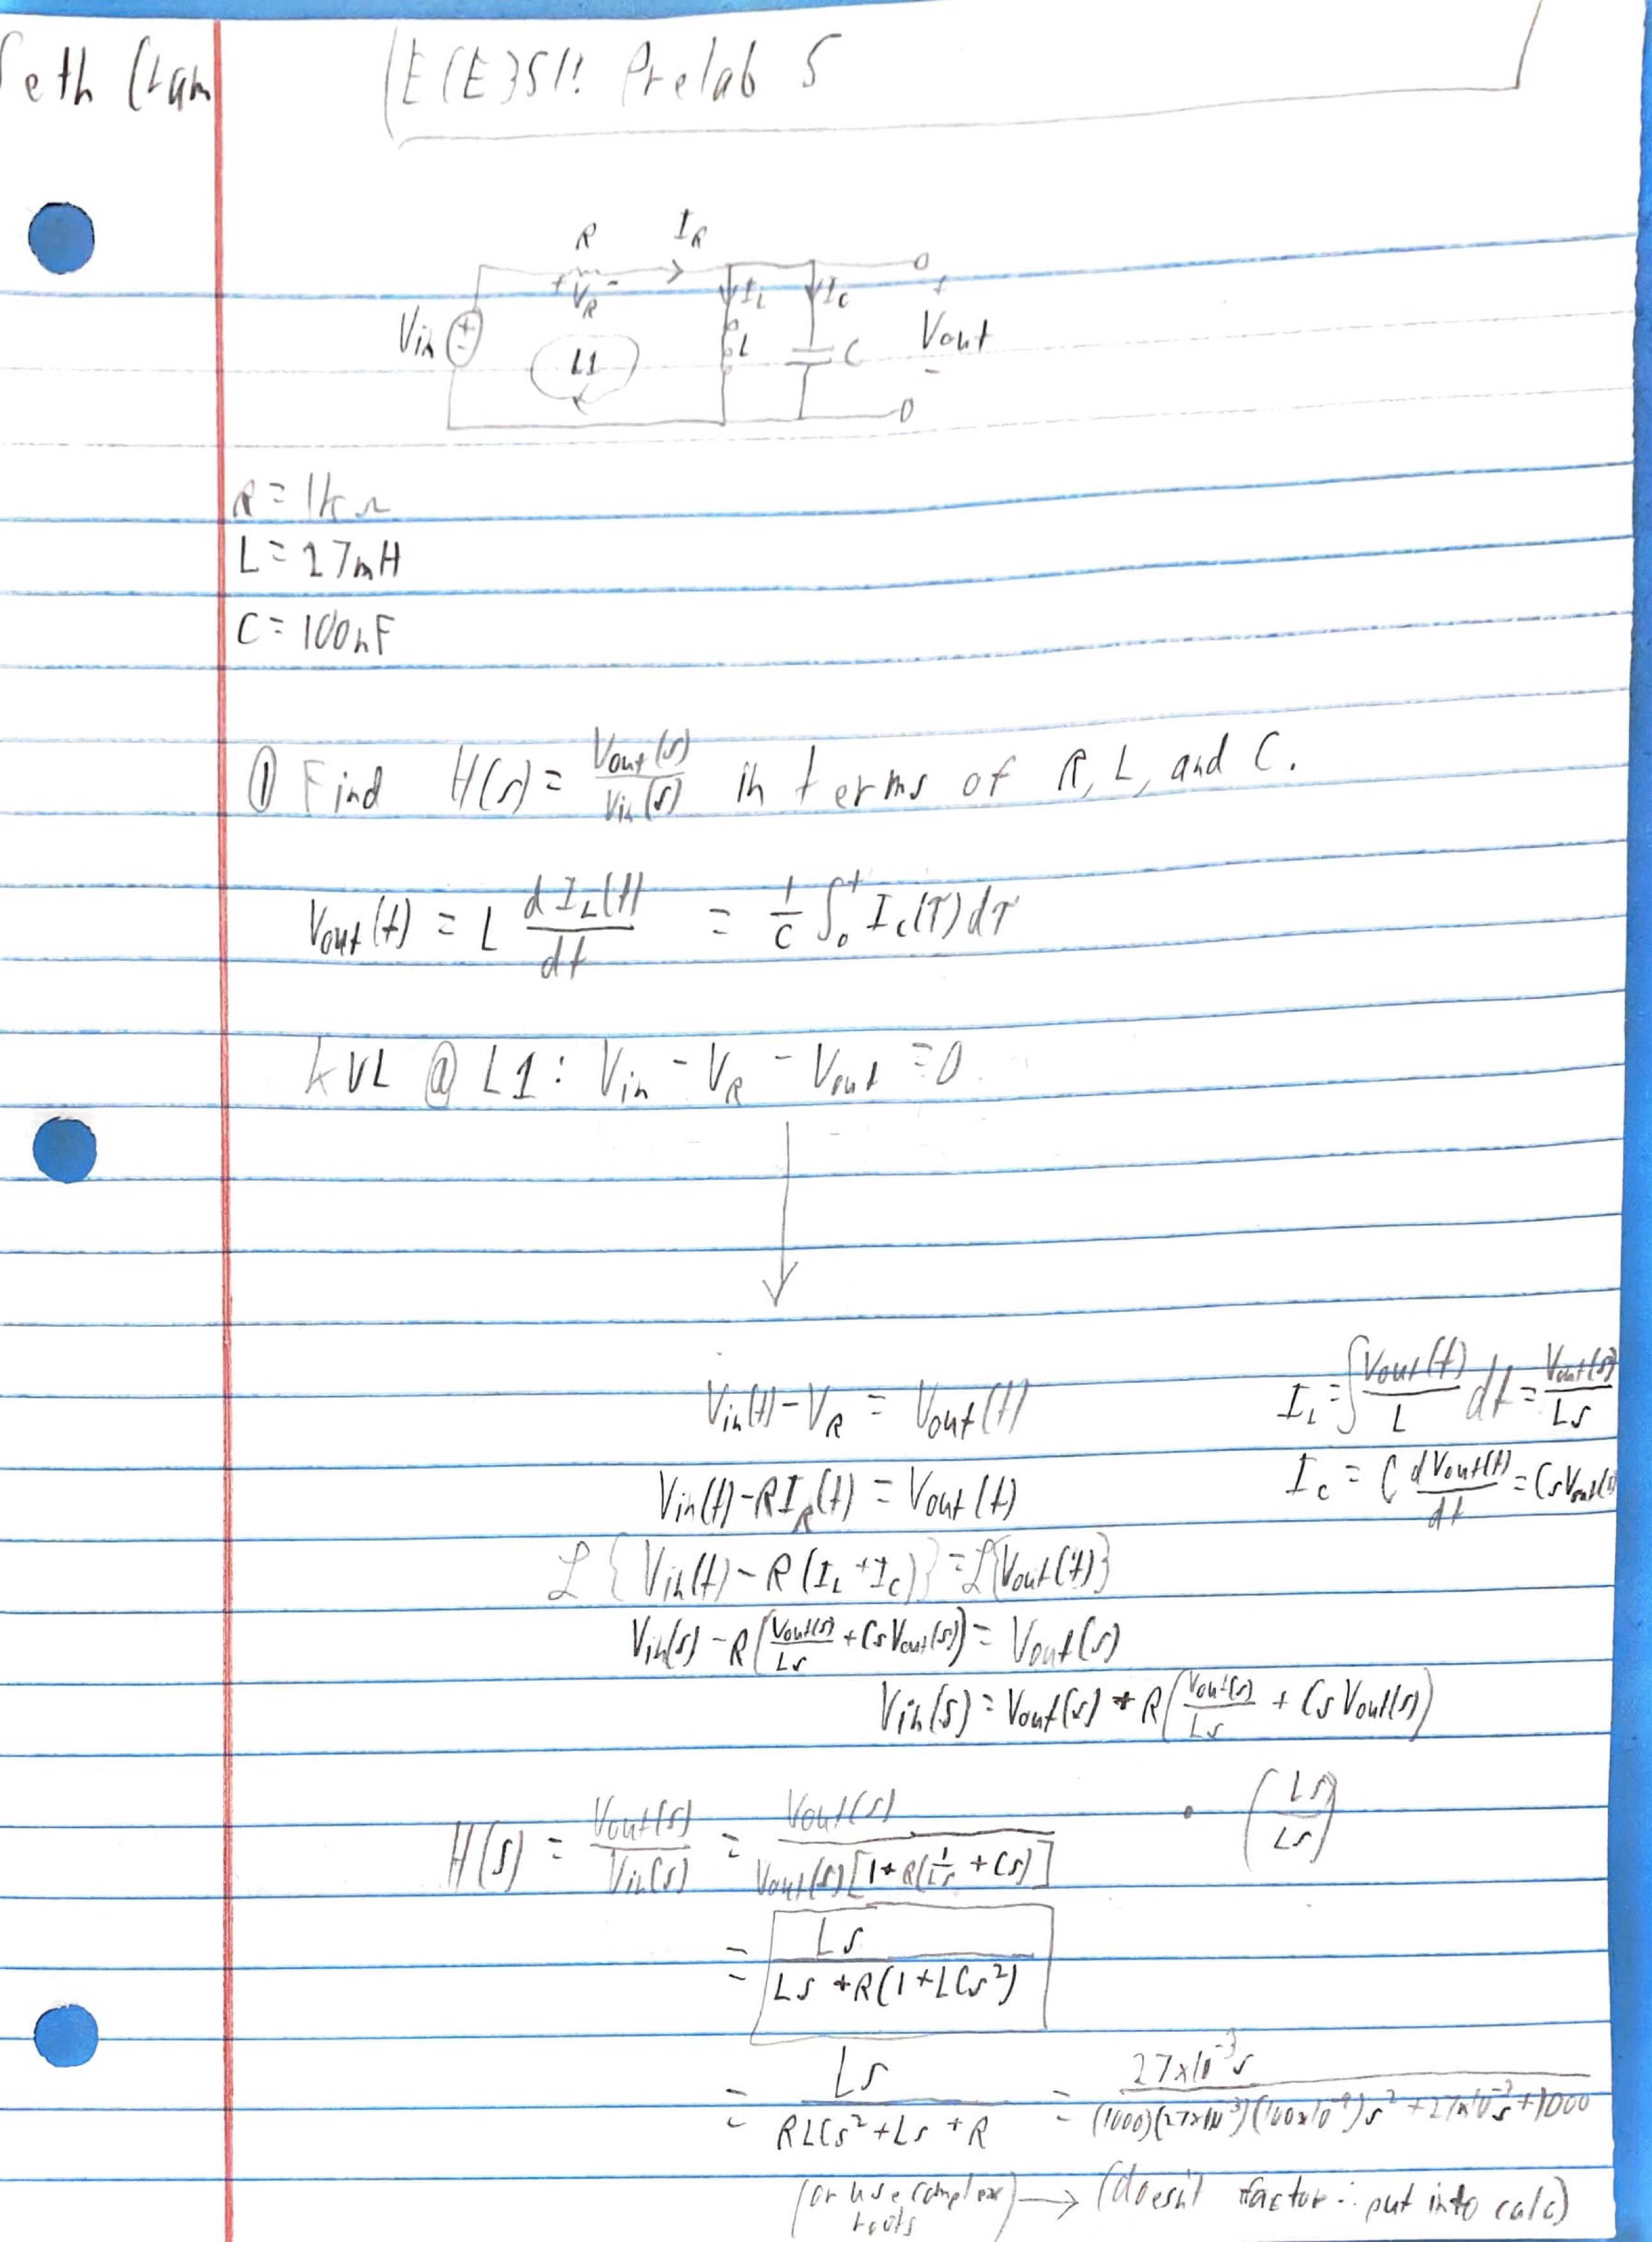 Seth
ECE351: Prelab 5
R
I_R
+ V_R -
I_L
I_C
+
Vin
+
-
L1
L
C
Vout
-
R = 1kΩ
L = 27mH
C = 100nF
① Find H(s) = Vout(s)/Vin(s) in terms of R, L, and C.
Vout(t) = L dI_L(t)/dt = 1/C ∫₀ᵗ I_C(τ)dτ
KVL @ L1: Vin - V_R - Vout = 0
Vin(t) - V_R = Vout(t)
I_L = ∫ Vout(t)/L dt = Vout(s)/Ls
Vin(t) - R I_R(t) = Vout(t)
I_C = C dVout(t)/dt = CsVout(s)
ℒ{Vin(t) - R(I_L + I_C)} = ℒ{Vout(t)}
Vin(s) - R(Vout(s)/Ls + CsVout(s)) = Vout(s)
Vin(s) = Vout(s) + R(Vout(s)/Ls + CsVout(s))
H(s) = Vout(s)/Vin(s) = Vout(s)/Vout(s)[1 + R(1/Ls + Cs)] · (Ls/Ls)
= Ls/Ls + R(1 + LCs²)
= Ls/RLCs² + Ls + R = 27x10⁻³s/(1000)(27x10⁻³)(100x10⁻⁹)s² + 27x10⁻³s + 1000
(or use complex roots) → (doesn't factor ∴ put into calc)